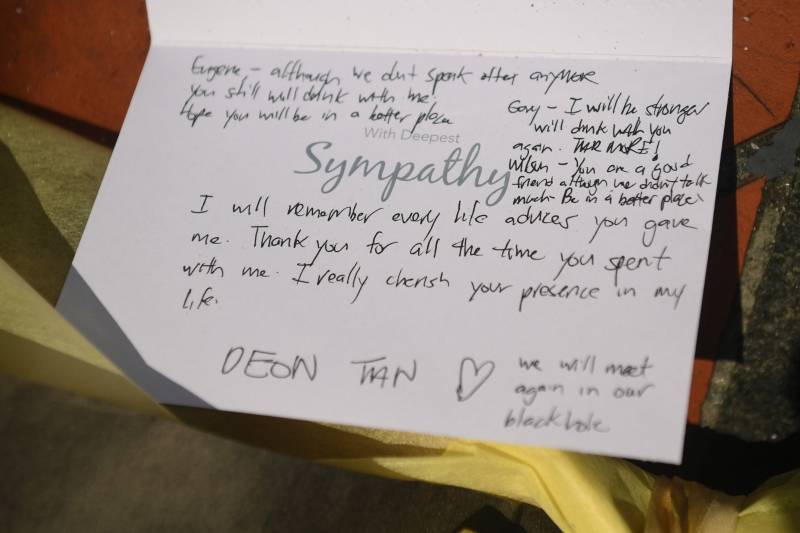 Eugene - although we dun't speak often anymore
you still will drink with me!
Hope you will be in a better place
With Deepest
Sympathy
Gary - I will be stronger
will drink with you
again.
Wilson - You are a good
friend although we didn't talk
much. Be in a better place
I will remember every life advices you gave
me. Thank you for all the time you spent
with me. I really cherish your presence in my
life.
DEON TAN ♡
we will meet
again in our
blackhole